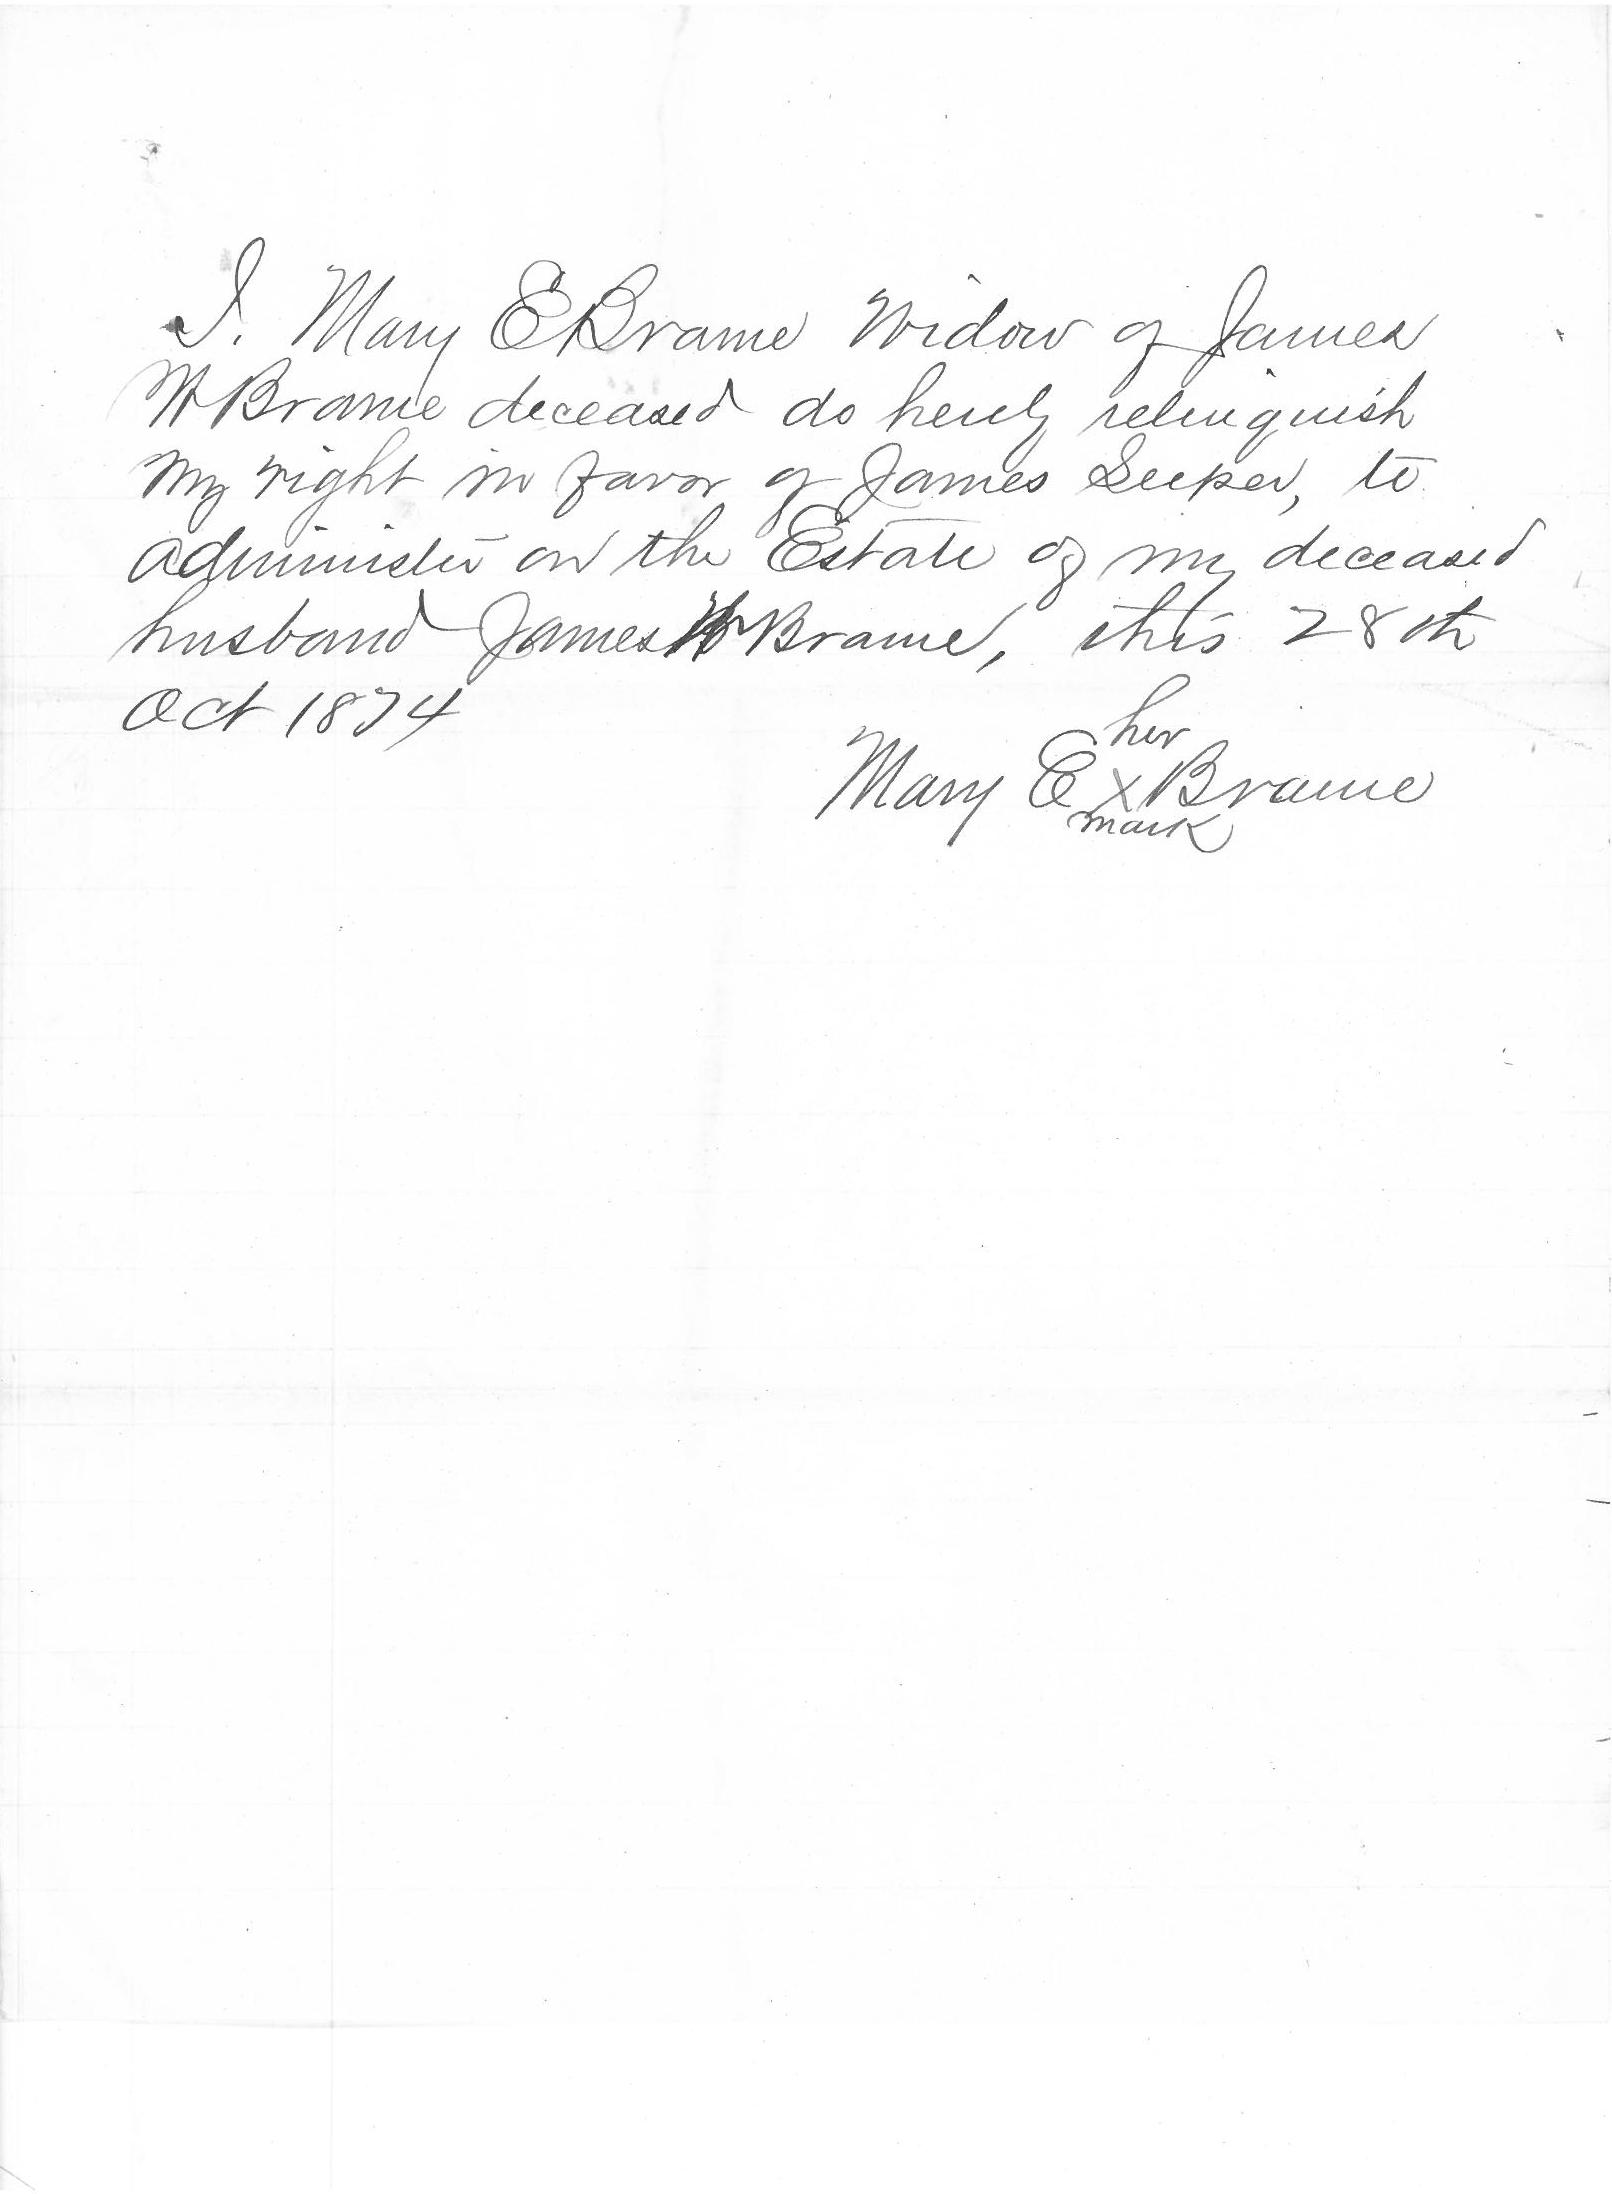 I. Mary E Brame Widow of James
W Brame deceased do hereby relinquish
my right in favor of James Seeper, to
administer on the Estate of my deceased
husband James W Brame, this 28th
Oct 1874
her
Mary E X Brame
mark